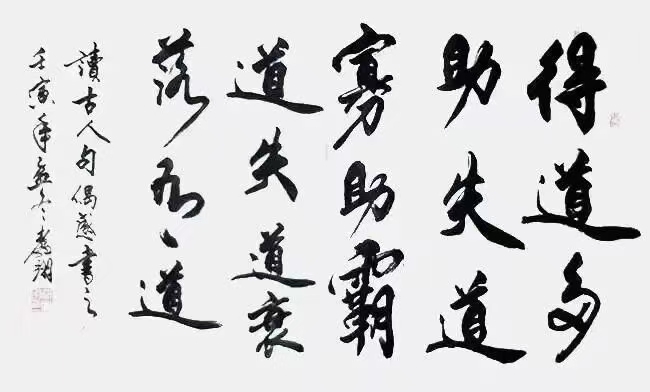 得道多
助失道
寡助霸
道失道衰
落道
讀古人句偶感書之
壬寅年孟冬翔